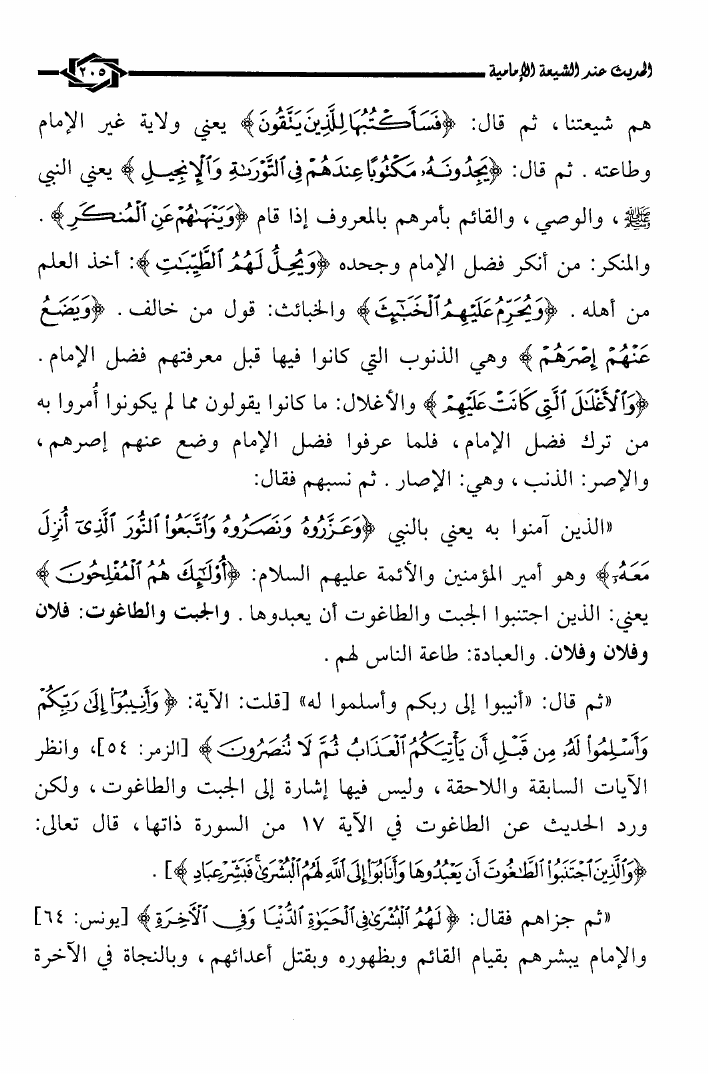 الحديث عند الشيعة الإمامية ٢٠٥
هم شيعتنا، ثم قال: ﴿فَسَأَكْتُبُهَا لِلَّذِينَ يَتَّقُونَ﴾ يعني ولاية غير الإمام
وطاعته. ثم قال: ﴿يَجِدُونَهُۥ مَكْتُوبًا عِندَهُمْ فِى التَّوْرَىٰةِ وَالْإِنجِيلِ﴾ يعني النبي
ﷺ، والوصي، والقائم بأمرهم بالمعروف إذا قام ﴿وَيَنْهَىٰهُمْ عَنِ الْمُنكَرِ﴾.
والمنكر: من أنكر فضل الإمام وجحده ﴿وَيُحِلُّ لَهُمُ الطَّيِّبَٰتِ﴾: أخذ العلم
من أهله. ﴿وَيُحَرِّمُ عَلَيْهِمُ الْخَبَٰٓئِثَ﴾ والخبائث: قول من خالف. ﴿وَيَضَعُ
عَنْهُمْ إِصْرَهُمْ﴾ وهي الذنوب التي كانوا فيها قبل معرفتهم فضل الإمام.
﴿وَالْأَغْلَٰلَ الَّتِى كَانَتْ عَلَيْهِمْ﴾ والأغلال: ما كانوا يقولون مما لم يكونوا أُمروا به
من ترك فضل الإمام، فلما عرفوا فضل الإمام وضع عنهم إصرهم،
والإصر: الذنب، وهي: الإصار. ثم نسبهم فقال:
«الذين آمنوا به يعني بالنبي ﴿وَعَزَّرُوهُ وَنَصَرُوهُ وَاتَّبَعُوا النُّورَ الَّذِىٓ أُنزِلَ
مَعَهُۥٓ﴾ وهو أمير المؤمنين والأئمة عليهم السلام: ﴿أُوْلَٰٓئِكَ هُمُ الْمُفْلِحُونَ﴾
يعني: الذين اجتنبوا الجبت والطاغوت أن يعبدوها. والجبت والطاغوت: فلان
وفلان وفلان. والعبادة: طاعة الناس لهم.
«ثم قال: «أنيبوا إلى ربكم وأسلموا له» [قلت: الآية: ﴿وَأَنِيبُوٓا إِلَىٰ رَبِّكُمْ
وَأَسْلِمُوا لَهُۥ مِن قَبْلِ أَن يَأْتِيَكُمُ الْعَذَابُ ثُمَّ لَا تُنصَرُونَ﴾ [الزمر: ٥٤]، وانظر
الآيات السابقة واللاحقة، وليس فيها إشارة إلى الجبت والطاغوت، ولكن
ورد الحديث عن الطاغوت في الآية ١٧ من السورة ذاتها، قال تعالى:
﴿وَالَّذِينَ اجْتَنَبُوا الطَّٰغُوتَ أَن يَعْبُدُوهَا وَأَنَابُوٓا إِلَى اللَّهِ لَهُمُ الْبُشْرَىٰ ۚ فَبَشِّرْ عِبَادِ﴾].
«ثم جزاهم فقال: ﴿لَهُمُ الْبُشْرَىٰ فِى الْحَيَوٰةِ الدُّنْيَا وَفِى الْأَخِرَةِ﴾ [يونس: ٦٤]
والإمام يبشرهم بقيام القائم وبظهوره وبقتل أعدائهم، وبالنجاة في الآخرة